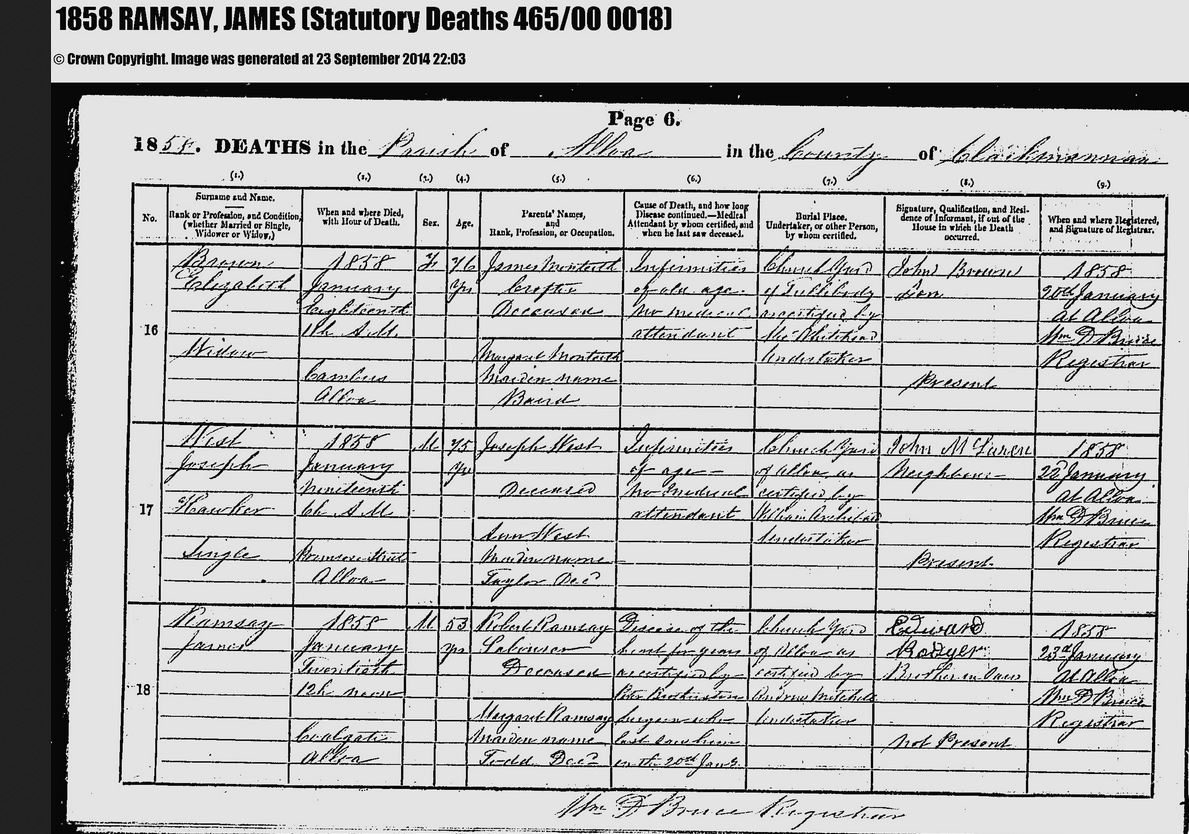 1858 RAMSAY, JAMES (Statutory Deaths 465/00 0018)
© Crown Copyright. Image was generated at 23 September 2014 22:03
Page 6.
1858. DEATHS in the Parish of Alloa in the County of Clackmannan
(1.) (2.) (3.) (4.) (5.) (6.) (7.) (8.) (9.)
No.
Surname and Name.
Rank or Profession, and Condition,
(whether Married or Single,
Widower or Widow.)
When and where Died,
with Hour of Death.
Sex.
Age.
Parents' Names,
and
Rank, Profession, or Occupation.
Cause of Death, and how long
Disease continued.—Medical
Attendant by whom certified, and
when he last saw deceased.
Burial Place.
Undertaker, or other Person,
by whom certified.
Signature, Qualification, and Resi-
dence of Informant, if out of the
House in which the Death
occurred.
When and where Registered,
and Signature of Registrar.
16
Brown
Elizabeth
Widow
1858
January
Eighteenth
A.M.
Cambus
Alloa
F
76
yrs
James Monteith
Crofter
Deceased
Margaret Monteith
Maiden name
Baird
Infirmities
of old age
No medical
attendant
Church Yard
of Tullibody
as certified by
Whitehead
Undertaker
John Brown
Son
Present
1858
20th January
At Alloa
Wm D Bruce
Registrar
17
West
Joseph
Hawker
Single
1858
January
Nineteenth
6h A.M.
Alloa
M
75
yrs
Joseph West
Deceased
Ann West
Maiden name
Taylor Decd
Infirmities
of age
No medical
attendant
Church Yard
of Alloa as
certified by
William Archibald
Undertaker
John McLaren
Neighbour
Present
1858
22d January
At Alloa
Wm D Bruce
Registrar
18
Ramsay
James
1858
January
Twentieth
12h noon
Coalgate
Alloa
M
53
yrs
Robert Ramsay
Labourer
Deceased
Margaret Ramsay
Maiden name
Todd Decd
Disease of the
heart for years
as certified by
Peter Brotherston
Surgeon who
last saw him
on the 20th Jany.
Church Yard
of Alloa as
certified by
Andrew Mitchell
Undertaker
Edward
Rodger
Brother in Law
not Present
1858
23d January
At Alloa
Wm D Bruce
Registrar
Wm D Bruce Registrar